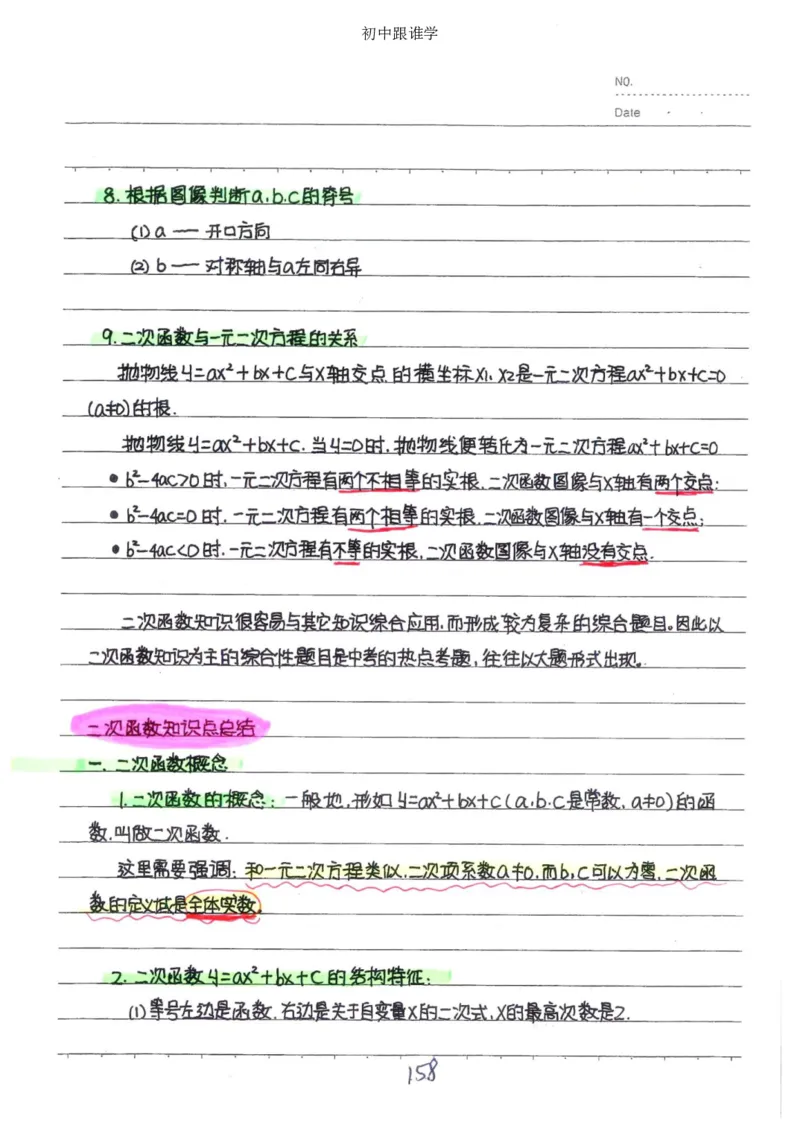 初中跟谁学
NO.
Date
8. 根据图像判断a.b.c的符号
(1) a — 开口方向
(2) b — 对称轴与a左同右异
9. 二次函数与一元二次方程的关系
抛物线y=ax²+bx+c与x轴交点的横坐标x₁, x₂是一元二次方程ax²+bx+c=0
(a≠0)的根.
抛物线y=ax²+bx+c. 当y=0时. 抛物线便转化为一元二次方程ax²+bx+c=0
• b²-4ac>0时, 一元二次方程有两个不相等的实根. 二次函数图像与x轴有两个交点;
• b²-4ac=0时. 一元二次方程有两个相等的实根. 二次函数图像与x轴有一个交点;
• b²-4ac<0时. 一元二次方程有不等的实根. 二次函数图像与x轴没有交点.
二次函数知识很容易与其它知识综合应用. 而形成较为复杂的综合题目。因此以
二次函数知识为主的综合性题目是中考的热点考题, 往往以大题形式出现。
二次函数知识点总结
一. 二次函数概念
1. 二次函数的概念: 一般地, 形如y=ax²+bx+c(a.b.c是常数. a≠0)的函
数. 叫做二次函数.
这里需要强调: 和一元二次方程类似. 二次项系数a≠0. 而b, c可以为零. 二次函
数的定义域是全体实数.
2. 二次函数y=ax²+bx+c的结构特征:
(1) 等号左边是函数. 右边是关于自变量x的二次式, x的最高次数是2.
158